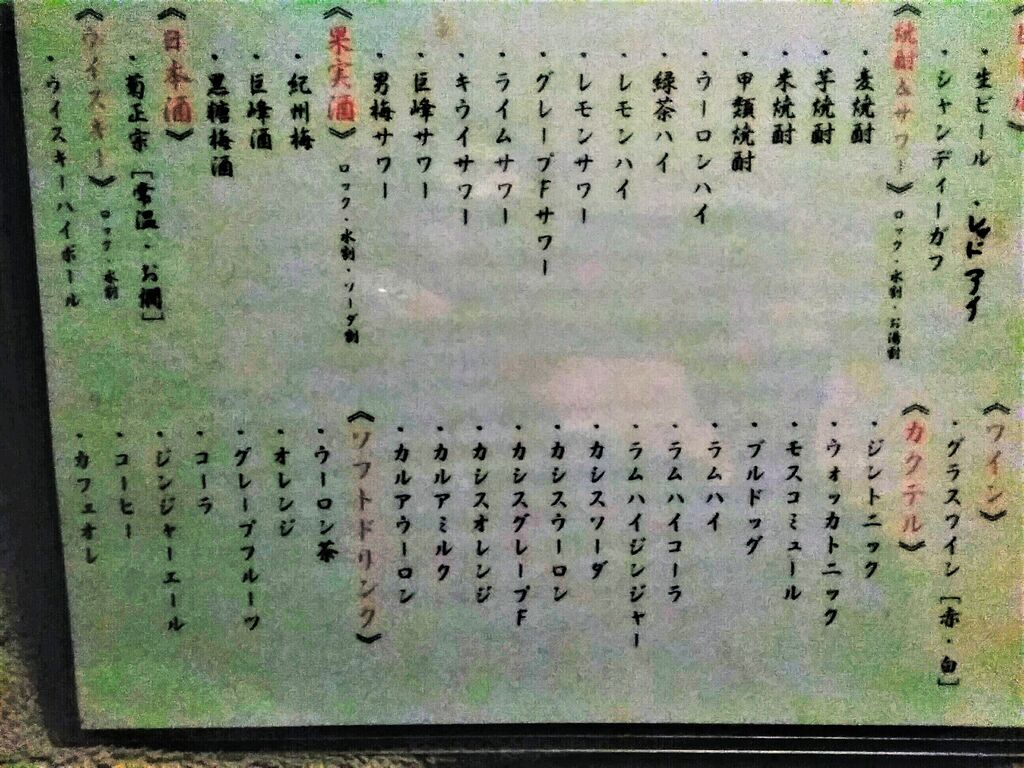 ・生ビール ・レッドアイ
・シャンディーガフ
《焼酎&サワー》 ロック・水割・お湯割
・麦焼酎
・芋焼酎
・米焼酎
・甲類焼酎
・ウーロンハイ
・緑茶ハイ
・レモンハイ
・レモンサワー
・グレープFサワー
・ライムサワー
・キウイサワー
・巨峰サワー
・男梅サワー
《果実酒》 ロック・水割・ソーダ割
・紀州梅
・巨峰酒
・黒糖梅酒
《日本酒》
・菊正宗[常温・お燗]
《ウイスキー》 ロック・水割
・ウイスキーハイボール
《ワイン》
・グラスワイン[赤・白]
《カクテル》
・ジントニック
・ウォッカトニック
・モスコミュール
・ブルドッグ
・ラムハイ
・ラムハイコーラ
・ラムハイジンジャー
・カシスソーダ
・カシスウーロン
・カシスグレープF
・カシスオレンジ
・カルアミルク
・カルアウーロン
《ソフトドリンク》
・ウーロン茶
・オレンジ
・グレープフルーツ
・コーラ
・ジンジャーエール
・コーヒー
・カフェオレ